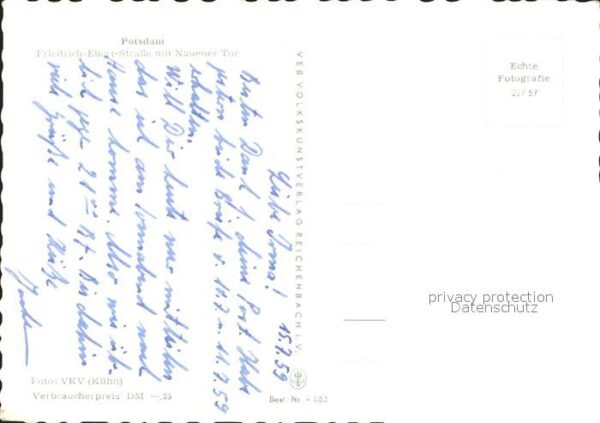 Potsdam
Friedrich-Ebert-Straße mit Nauener Tor
15.7.59
Liebe Irma!
Besten Dank f. deine Post. Habe
gestern beide Briefe v. 10.7. u. 11.7.59
erhalten.
Will Dir heute nur mitteilen
das ich am Sonnabend nach
Hause komme. Also wie üb-
lich gegen 21 00 Bf. Bis dahin
viele Grüße und Küße
VEB VOLKSKUNSTVERLAG REICHENBACH i. V.
Echte
Fotografie
privacy protection
Datenschutz
Foto: VKV (Kühn)
Verbraucherpreis: DM —,25
Best.-Nr. 4 585